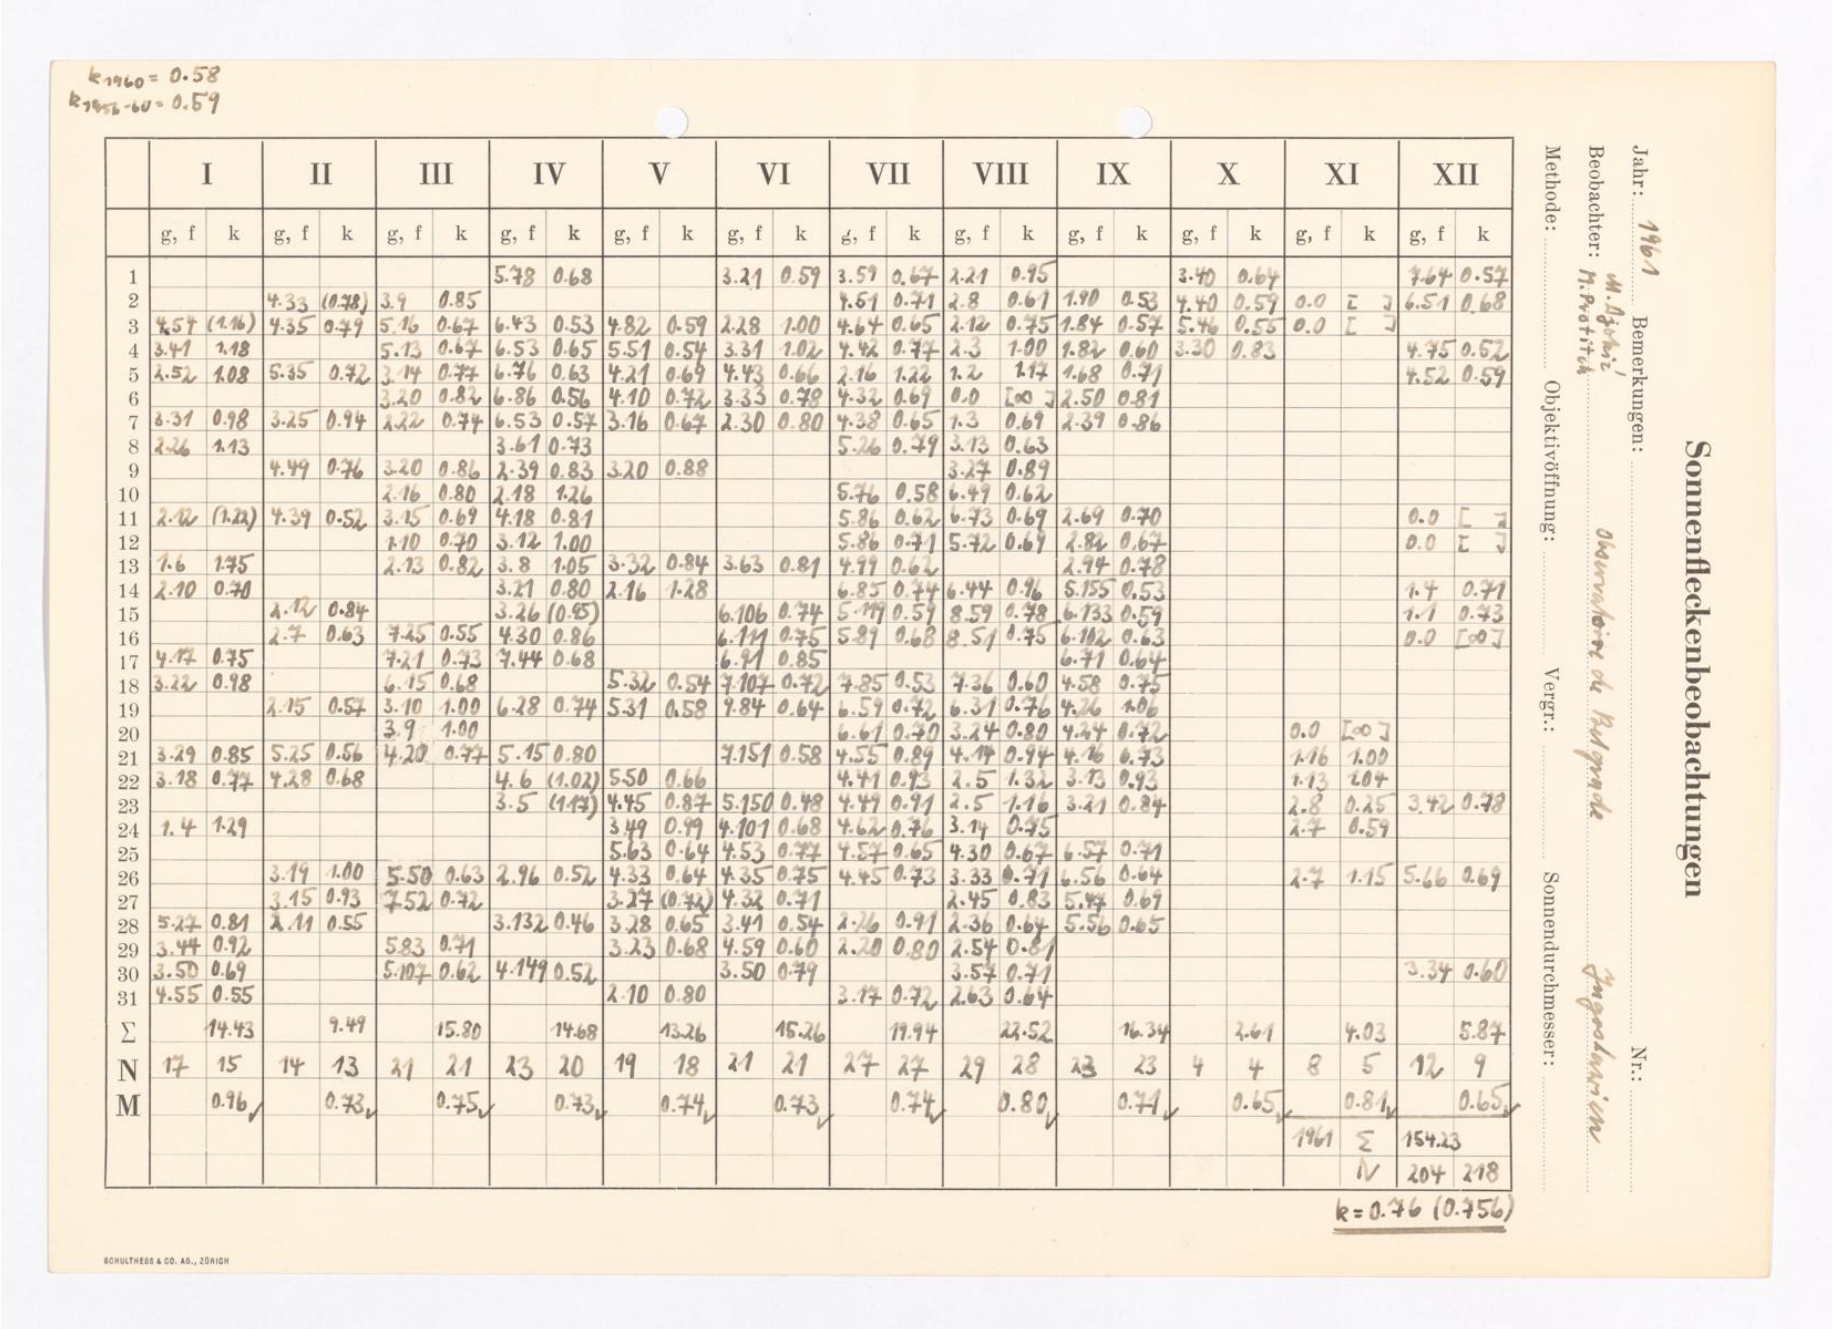 k1960 = 0.58
k1956-60 = 0.59
I II III IV V VI VII VIII IX X XI XII
g, f k g, f k g, f k g, f k g, f k g, f k g, f k g, f k g, f k g, f k g, f k g, f k
1 5.78 0.68 3.21 0.59 3.59 0.67 2.21 0.95 3.40 0.64 7.64 0.57
2 4.33 (0.78) 3.9 0.85 4.51 0.71 2.8 0.61 1.90 0.53 4.40 0.59 0.0 [ ] 6.51 0.68
3 4.54 (1.16) 4.35 0.79 5.16 0.67 6.43 0.53 4.82 0.59 2.28 1.00 4.64 0.65 2.12 0.75 1.84 0.57 5.46 0.55 0.0 [ ]
4 3.41 1.18 5.13 0.67 6.53 0.65 5.51 0.54 3.31 1.02 4.42 0.77 2.3 1.00 1.82 0.60 3.30 0.83 4.75 0.52
5 2.52 1.08 5.35 0.72 3.14 0.77 6.76 0.63 4.21 0.69 4.43 0.66 2.16 1.22 1.2 1.17 1.68 0.71 4.52 0.59
6 3.20 0.82 6.86 0.56 4.10 0.72 3.33 0.78 4.32 0.69 0.0 [∞] 2.50 0.81
7 3.31 0.98 3.25 0.94 2.22 0.74 6.53 0.57 3.16 0.67 2.30 0.80 4.38 0.65 1.3 0.69 2.39 0.86
8 2.26 1.13 3.61 0.73 5.26 0.79 3.13 0.63
9 4.49 0.76 3.20 0.86 2.39 0.83 3.20 0.88 3.27 0.89
10 2.16 0.80 2.18 1.26 5.76 0.58 6.49 0.62
11 2.12 (1.22) 4.39 0.52 3.15 0.69 4.18 0.81 5.86 0.62 6.73 0.69 2.69 0.70 0.0 [ ]
12 1.10 0.70 3.12 1.00 5.86 0.71 5.72 0.69 2.82 0.67 0.0 [ ]
13 1.6 1.75 2.13 0.82 3.8 1.05 3.32 0.84 3.63 0.81 4.99 0.62 2.94 0.78
14 2.10 0.70 3.21 0.80 2.16 1.28 6.85 0.74 6.44 0.96 5.155 0.53 1.4 0.71
15 2.12 0.84 3.26 (0.95) 6.106 0.74 5.119 0.59 8.59 0.78 6.133 0.59 1.1 0.73
16 2.7 0.63 7.25 0.55 4.30 0.86 6.111 0.75 5.89 0.68 8.51 0.75 6.102 0.63 0.0 [∞]
17 4.17 0.75 7.21 0.73 7.44 0.68 6.91 0.85 6.71 0.64
18 3.22 0.98 6.15 0.68 5.32 0.54 7.107 0.72 7.85 0.53 7.36 0.60 4.58 0.75
19 2.15 0.57 3.10 1.00 6.28 0.74 5.31 0.58 9.84 0.64 6.59 0.72 6.31 0.76 4.26 1.06
20 3.9 1.00 6.61 0.70 3.24 0.80 4.24 0.72 0.0 [∞]
21 3.29 0.85 5.25 0.56 4.20 0.77 5.15 0.80 7.151 0.58 4.55 0.89 4.14 0.94 4.16 0.73 1.16 1.00
22 3.18 0.77 4.28 0.68 4.6 (1.02) 5.50 0.66 4.41 0.93 2.5 1.32 3.13 0.93 1.13 1.04
23 3.5 (1.17) 4.45 0.87 5.150 0.48 4.49 0.91 2.5 1.16 3.21 0.84 2.8 0.25 3.42 0.78
24 1.4 1.29 3.49 0.99 4.101 0.68 4.62 0.76 3.14 0.75 2.7 0.59
25 5.63 0.64 4.53 0.77 4.57 0.65 4.30 0.67 6.57 0.71
26 3.19 1.00 5.50 0.63 2.96 0.52 4.33 0.64 4.35 0.75 4.45 0.73 3.33 0.71 6.56 0.64 2.7 1.15 5.66 0.69
27 3.15 0.93 7.52 0.72 3.27 (0.72) 4.32 0.71 2.45 0.83 5.47 0.69
28 5.27 0.81 2.11 0.55 3.132 0.46 3.28 0.65 3.41 0.54 2.26 0.91 2.36 0.64 5.56 0.65
29 3.44 0.92 5.83 0.71 3.23 0.68 4.59 0.60 2.20 0.80 2.54 0.81
30 3.50 0.69 5.107 0.62 4.149 0.52 3.50 0.79 3.57 0.71 3.34 0.60
31 4.55 0.55 2.10 0.80 3.17 0.72 2.63 0.64
Σ 14.43 9.49 15.80 14.68 13.26 15.26 19.94 22.52 16.34 2.61 4.03 5.87
N 17 15 14 13 21 21 23 20 19 18 21 21 27 27 29 28 23 23 4 4 8 5 12 9
M 0.96 0.73 0.75 0.73 0.74 0.73 0.74 0.80 0.71 0.65 0.81 0.65
1961 Σ 154.23
N 204 218
k = 0.76 (0.756)
SCHULTHESS & CO. AG., ZÜRICH
Sonnenfleckenbeobachtungen
Jahr: 1961 Bemerkungen: Nr.:
Beobachter: M. Protitch Observatoire de Belgrade Jugoslawien
Methode: Objektivöffnung: Vergr.: Sonnendurchmesser: